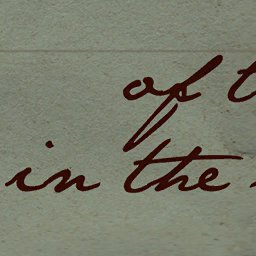 of t
in the